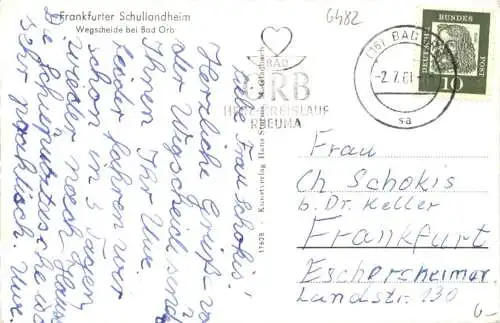 Frankfurter Schullandheim
Wegscheide bei Bad Orb
6482
Liebe Frau Schokis!
Herzliche Grüße von
der Wegscheide sendet
Ihnen Ihr Uwe.
Leider fahren wir
schon in 3 Tagen
wieder nach Hause
Die Schuhputztasche ist
sehr praktisch. Uwe.
17628 · Kunstverlag Hans
BAD
ORB
HERZ KREISLAUF
RHEUMA
(16) BAD
-2.7.61
sa
DEUTSCHE BUNDESPOST
10
Frau
Ch Schokis
b. Dr. Keller
Frankfurt
Eschersheimer
Landstr. 130